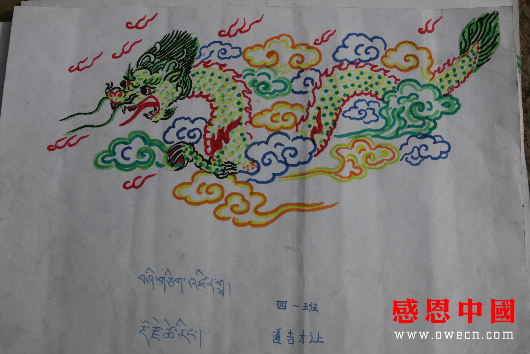 བཞི་གཅིག་འཛིན་གྲྭ།
四一班
རྡོ་རྗེ་ཚེ་རིང་།
道吉才让
感恩中國
www.owecn.com